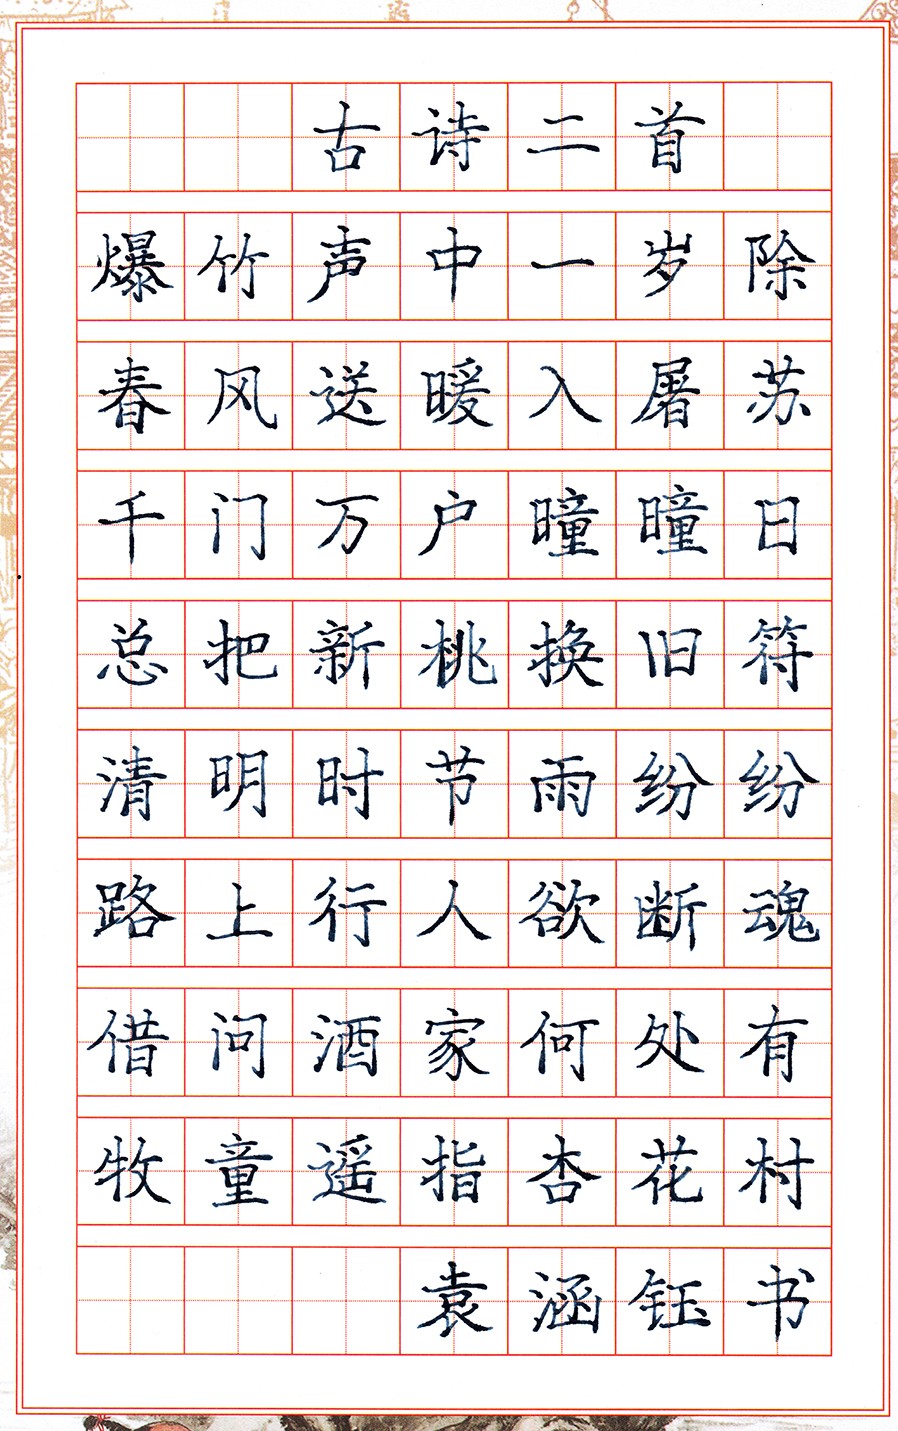 古诗二首
爆竹声中一岁除
春风送暖入屠苏
千门万户曈曈日
总把新桃换旧符
清明时节雨纷纷
路上行人欲断魂
借问酒家何处有
牧童遥指杏花村
袁涵钰书